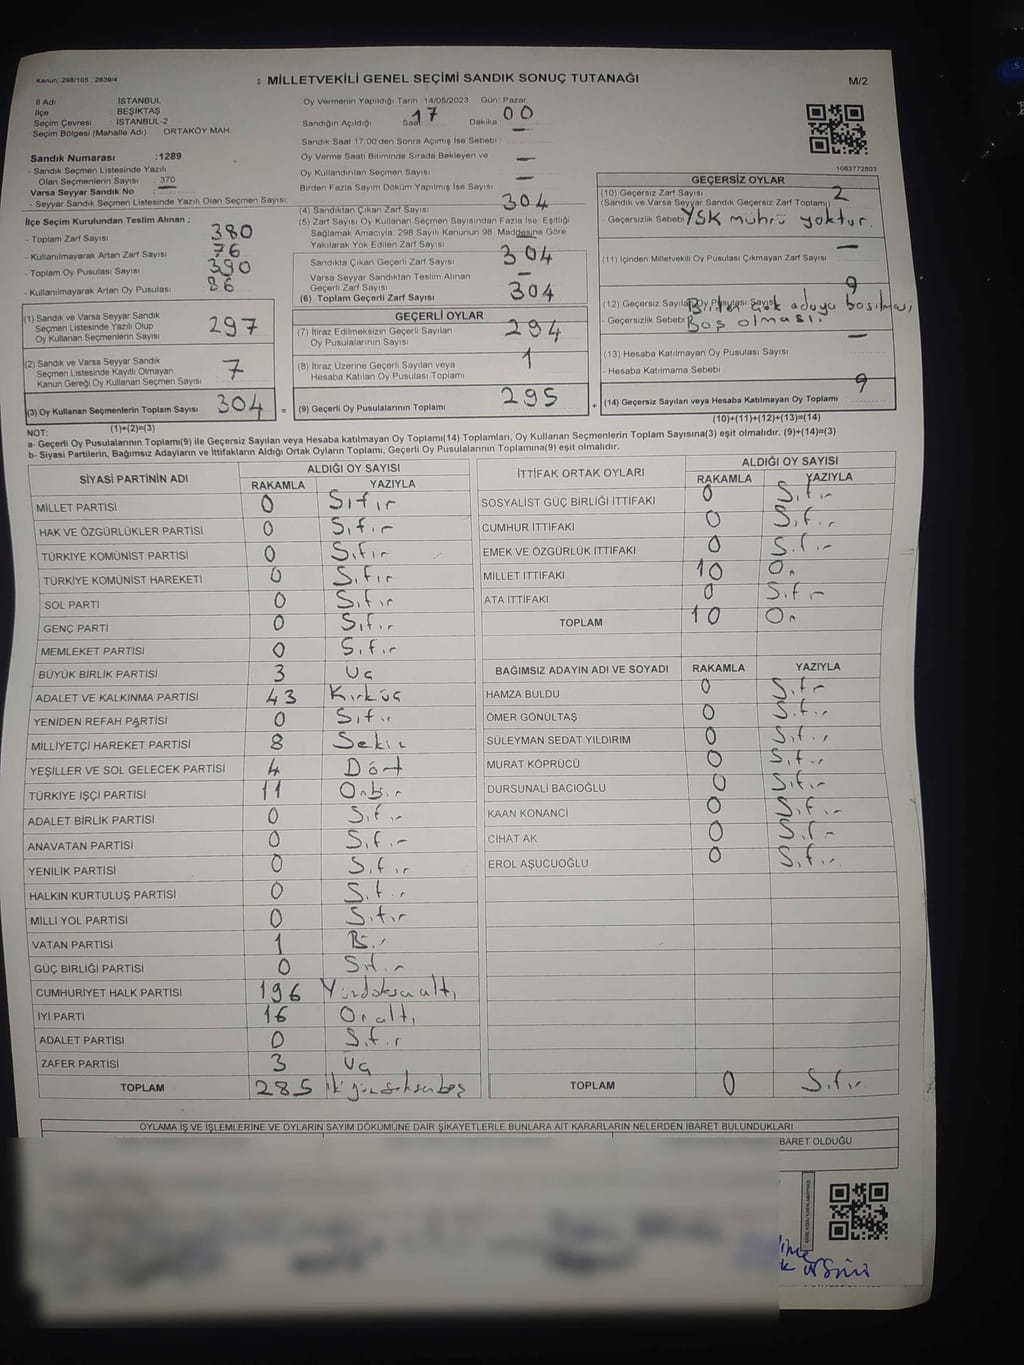 Kanun: 298/105 , 2839/4
: MİLLETVEKİLİ GENEL SEÇİMİ SANDIK SONUÇ TUTANAĞI
M/2
İl Adı : İSTANBUL
İlçe : BEŞİKTAŞ
Seçim Çevresi : İSTANBUL-2
Seçim Bölgesi (Mahalle Adı) : ORTAKÖY MAH.
Sandık Numarası :1289
- Sandık Seçmen Listesinde Yazılı
Olan Seçmenlerin Sayısı : 370
Varsa Seyyar Sandık No : —
- Seyyar Sandık Seçmen Listesinde Yazılı Olan Seçmen Sayısı:
Oy Vermenin Yapıldığı Tarih :14/05/2023 Gün: Pazar
Sandığın Açıldığı Saat 17 Dakika 00
Sandık Saat 17:00'den Sonra Açılmış İse Sebebi : —
Oy Verme Saati Bitiminde Sırada Bekleyen ve
Oy Kullandırılan Seçmen Sayısı —
Birden Fazla Sayım Döküm Yapılmış İse Sayısı —
1083772803
İlçe Seçim Kurulundan Teslim Alınan ;
- Toplam Zarf Sayısı 380
- Kullanılmayarak Artan Zarf Sayısı 76
- Toplam Oy Pusulası Sayısı 390
- Kullanılmayarak Artan Oy Pusulası 86
(1) Sandık ve Varsa Seyyar Sandık
Seçmen Listesinde Yazılı Olup
Oy Kullanan Seçmenlerin Sayısı 297
(2) Sandık ve Varsa Seyyar Sandık
Seçmen Listesinde Kayıtlı Olmayan
Kanun Gereği Oy Kullanan Seçmen Sayısı 7
(3) Oy Kullanan Seçmenlerin Toplam Sayısı 304 =
(1)+(2)=(3)
(4) Sandıktan Çıkan Zarf Sayısı 304
(5) Zarf Sayısı, Oy Kullanan Seçmen Sayısından Fazla İse, Eşitliği
Sağlamak Amacıyla, 298 Sayılı Kanunun 98. Maddesine Göre
Yakılarak Yok Edilen Zarf Sayısı —
Sandıkta Çıkan Geçerli Zarf Sayısı 304
Varsa Seyyar Sandıktan Teslim Alınan
Geçerli Zarf Sayısı —
(6) Toplam Geçerli Zarf Sayısı 304
GEÇERLİ OYLAR
(7) İtiraz Edilmeksizin Geçerli Sayılan
Oy Pusulalarının Sayısı 294
(8) İtiraz Üzerine Geçerli Sayılan veya
Hesaba Katılan Oy Pusulası Toplamı 1
(9) Geçerli Oy Pusulalarının Toplamı 295 +
GEÇERSİZ OYLAR
(10) Geçersiz Zarf Sayısı 2
(Sandık ve Varsa Seyyar Sandık Geçersiz Zarf Toplamı)
- Geçersizlik Sebebi YSK mührü yoktur.
(11) İçinden Milletvekili Oy Pusulası Çıkmayan Zarf Sayısı —
(12) Geçersiz Sayılan Oy Pusulası Sayısı 9
- Geçersizlik Sebebi Birden çok adaya basılması,
Boş olması.
(13) Hesaba Katılmayan Oy Pusulası Sayısı —
- Hesaba Katılmama Sebebi :
(14) Geçersiz Sayılan veya Hesaba Katılmayan Oy Toplamı 9
(10)+(11)+(12)+(13)=(14)
NOT:
a- Geçerli Oy Pusulalarının Toplamı(9) ile Geçersiz Sayılan veya Hesaba katılmayan Oy Toplamı(14) Toplamları, Oy Kullanan Seçmenlerin Toplam Sayısına(3) eşit olmalıdır. (9)+(14)=(3)
b- Siyasi Partilerin, Bağımsız Adayların ve İttifakların Aldığı Ortak Oyların Toplamı, Geçerli Oy Pusulalarının Toplamına(9) eşit olmalıdır.
SİYASİ PARTİNİN ADI ALDIĞI OY SAYISI
RAKAMLA YAZIYLA
MİLLET PARTİSİ 0 Sıfır
HAK VE ÖZGÜRLÜKLER PARTİSİ 0 Sıfır
TÜRKİYE KOMÜNİST PARTİSİ 0 Sıfır
TÜRKİYE KOMÜNİST HAREKETİ 0 Sıfır
SOL PARTİ 0 Sıfır
GENÇ PARTİ 0 Sıfır
MEMLEKET PARTİSİ 0 Sıfır
BÜYÜK BİRLİK PARTİSİ 3 Üç
ADALET VE KALKINMA PARTİSİ 43 Kırküç
YENİDEN REFAH PARTİSİ 0 Sıfır
MİLLİYETÇİ HAREKET PARTİSİ 8 Sekiz
YEŞİLLER VE SOL GELECEK PARTİSİ 4 Dört
TÜRKİYE İŞÇİ PARTİSİ 11 Onbir
ADALET BİRLİK PARTİSİ 0 Sıfır
ANAVATAN PARTİSİ 0 Sıfır
YENİLİK PARTİSİ 0 Sıfır
HALKIN KURTULUŞ PARTİSİ 0 Sıfır
MİLLİ YOL PARTİSİ 0 Sıfır
VATAN PARTİSİ 1 Bir
GÜÇ BİRLİĞİ PARTİSİ 0 Sıfır
CUMHURİYET HALK PARTİSİ 196 Yüzdoksanaltı
İYİ PARTİ 16 Onaltı
ADALET PARTİSİ 0 Sıfır
ZAFER PARTİSİ 3 Üç
TOPLAM 285 ikiyüzseksenbeş
İTTİFAK ORTAK OYLARI ALDIĞI OY SAYISI
RAKAMLA YAZIYLA
SOSYALİST GÜÇ BİRLİĞİ İTTİFAKI 0 Sıfır
CUMHUR İTTİFAKI 0 Sıfır
EMEK VE ÖZGÜRLÜK İTTİFAKI 0 Sıfır
MİLLET İTTİFAKI 10 On
ATA İTTİFAKI 0 Sıfır
TOPLAM 10 On
BAĞIMSIZ ADAYIN ADI VE SOYADI RAKAMLA YAZIYLA
HAMZA BULDU 0 Sıfır
ÖMER GÖNÜLTAŞ 0 Sıfır
SÜLEYMAN SEDAT YILDIRIM 0 Sıfır
MURAT KÖPRÜCÜ 0 Sıfır
DURSUNALİ BACIOĞLU 0 Sıfır
KAAN KONANCI 0 Sıfır
CİHAT AK 0 Sıfır
EROL AŞUCUOĞLU 0 Sıfır
TOPLAM 0 Sıfır
OYLAMA İŞ VE İŞLEMLERİNE VE OYLARIN SAYIM DÖKÜMÜNE DAİR ŞİKAYETLERLE BUNLARA AİT KARARLARIN NELERDEN İBARET BULUNDUKLARI
BARET OLDUĞU